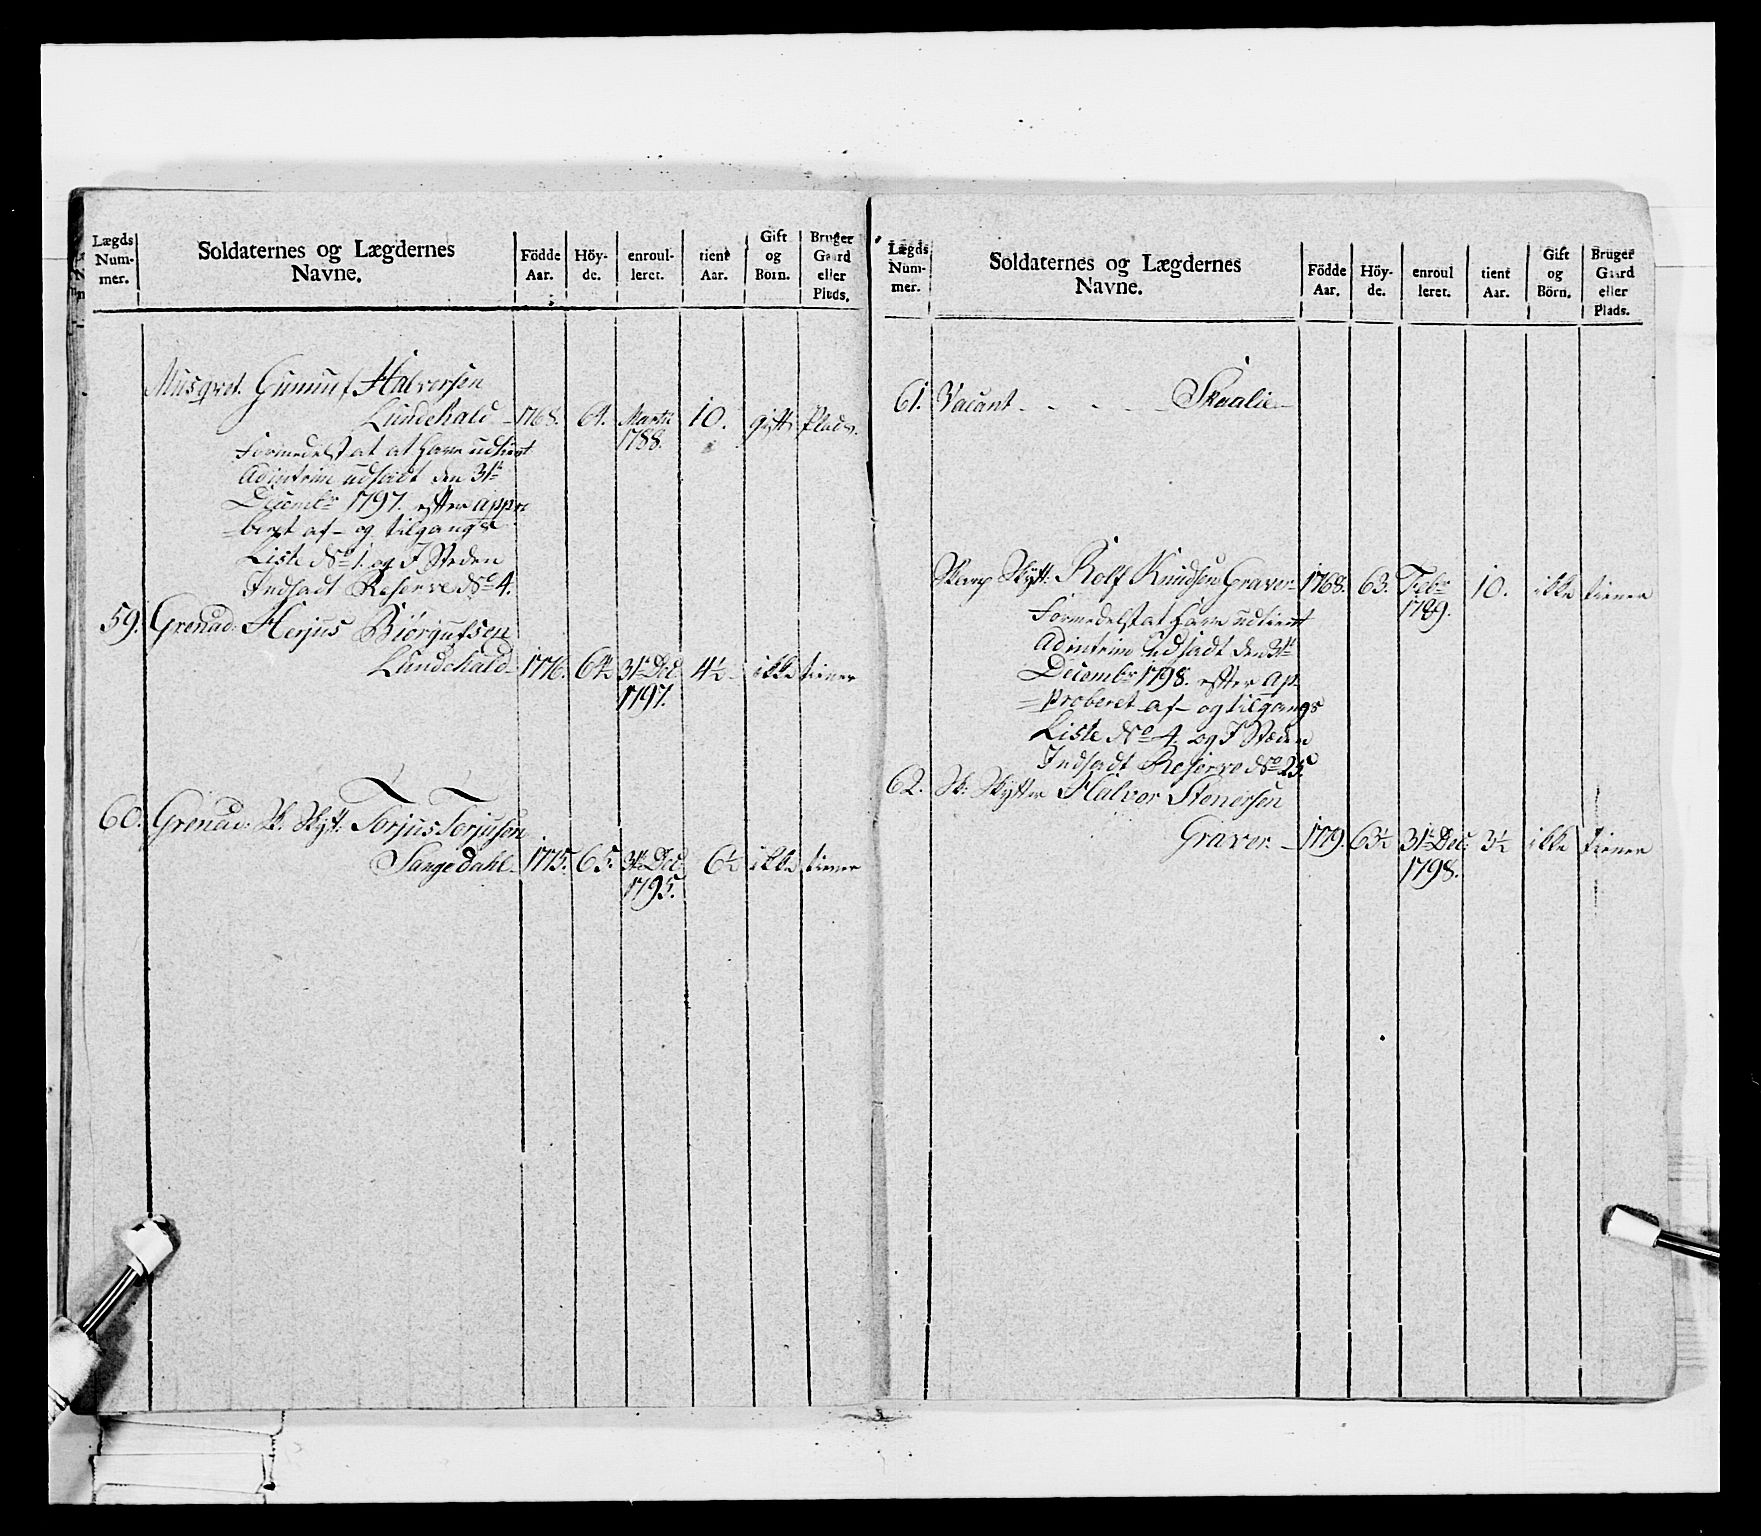 Lægds Num- mer.
Soldaternes og Lægdernes Navne.
Födde Aar.
Höy- de.
enroul- leret.
tient Aar.
Gift og Born.
Bruger Gaard eller Plads.
Musqvet. Gunnuf Halvorsen
Lundekald - 1768. 64. Martii 1788. 10. gift Plads.
Formedelst at have udtient
Adintrim udsadt den 31te
Decembr 1797. efter appro
=beret af- og tilgangs
Liste No 1. og I Steden
Indsadt Reserve No 4.
59. Grenad: Herjus Biörgufsen
Lundekald - 1776. 64½ 31te Dec 1797. 4½ - ikke tiener
60. Grenad: Sk. Skytt: Torjus Torjusen
Saugedahl - 1775. 65. 31te Dec 1795. 6½ ikke tiener
Lægds Num- mer.
Soldaternes og Lægdernes Navne.
Födde Aar.
Höy- de.
enroul leret.
tient Aar.
Gift og Börn.
Bruger Gaard eller Plads.
61. Vacant - - - - Skaalie -
Skarp Skytt: Rolf Knudsen Graver - 1768. 63. Febr 1789. 10. ikke tiener
Formedelst at have udtient
Adintrim udsadt den 31te
Decembr 1798. efter ap-
=proberet af- og tilgangs
Liste No 4. og I Steden
Indsadt Reserve No 25.
62. Sk. Skytter Halvor Stenersen
Graver - 1779. 63½ 31te Dec. 1798. 3½ ikke tiener